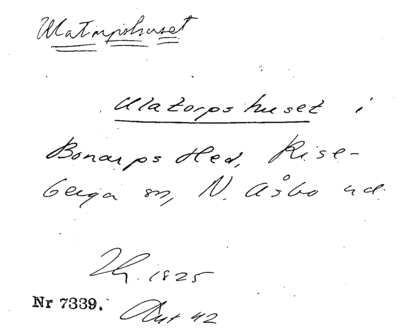 Ulatorpshuset
Ulatorpshuset i
Bonarps Hed, Rise-
berga sn, N. Åsbo hd.
1825
Nr 7339. 42